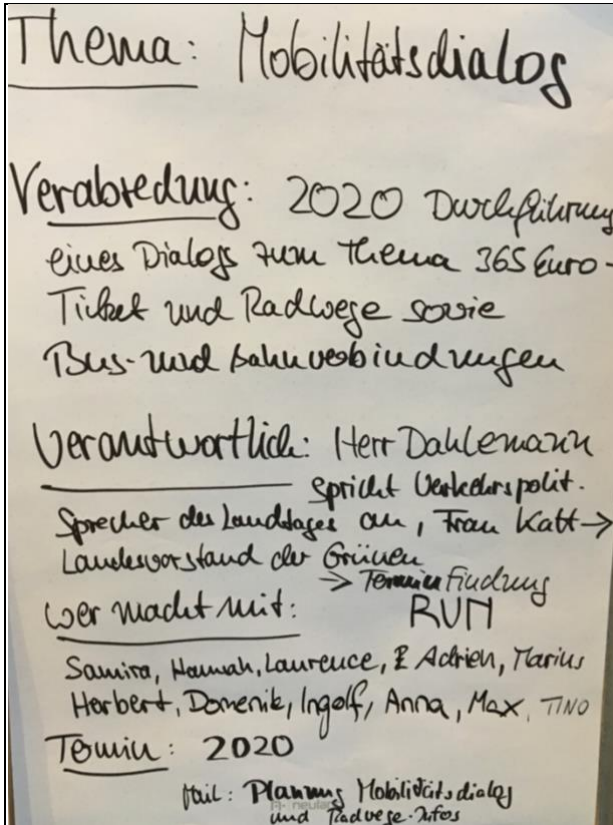 Thema: Mobilitätsdialog
Verabredung: 2020 Durchführung
eines Dialogs zum Thema 365 Euro-
Ticket und Radwege sowie
Bus- und Bahnverbindungen
Verantwortlich: Herr Dahlemann
spricht Verkehrspolit.
Sprecher des Landtages an, Frau Katt →
Landesvorstand der Grünen
→ Terminfindung
Wer macht mit: RUN
Samira, Hannah, Laurence, Adrien, Marius
Herbert, Domenik, Ingolf, Anna, Max, TINO
Termin: 2020
Mail: Planung Mobilitätsdialog
und Radwege-Infos